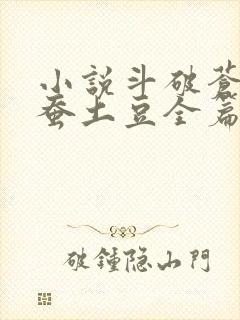 小說斗破蒼
蚕土豆全篇
破鍾隐山門